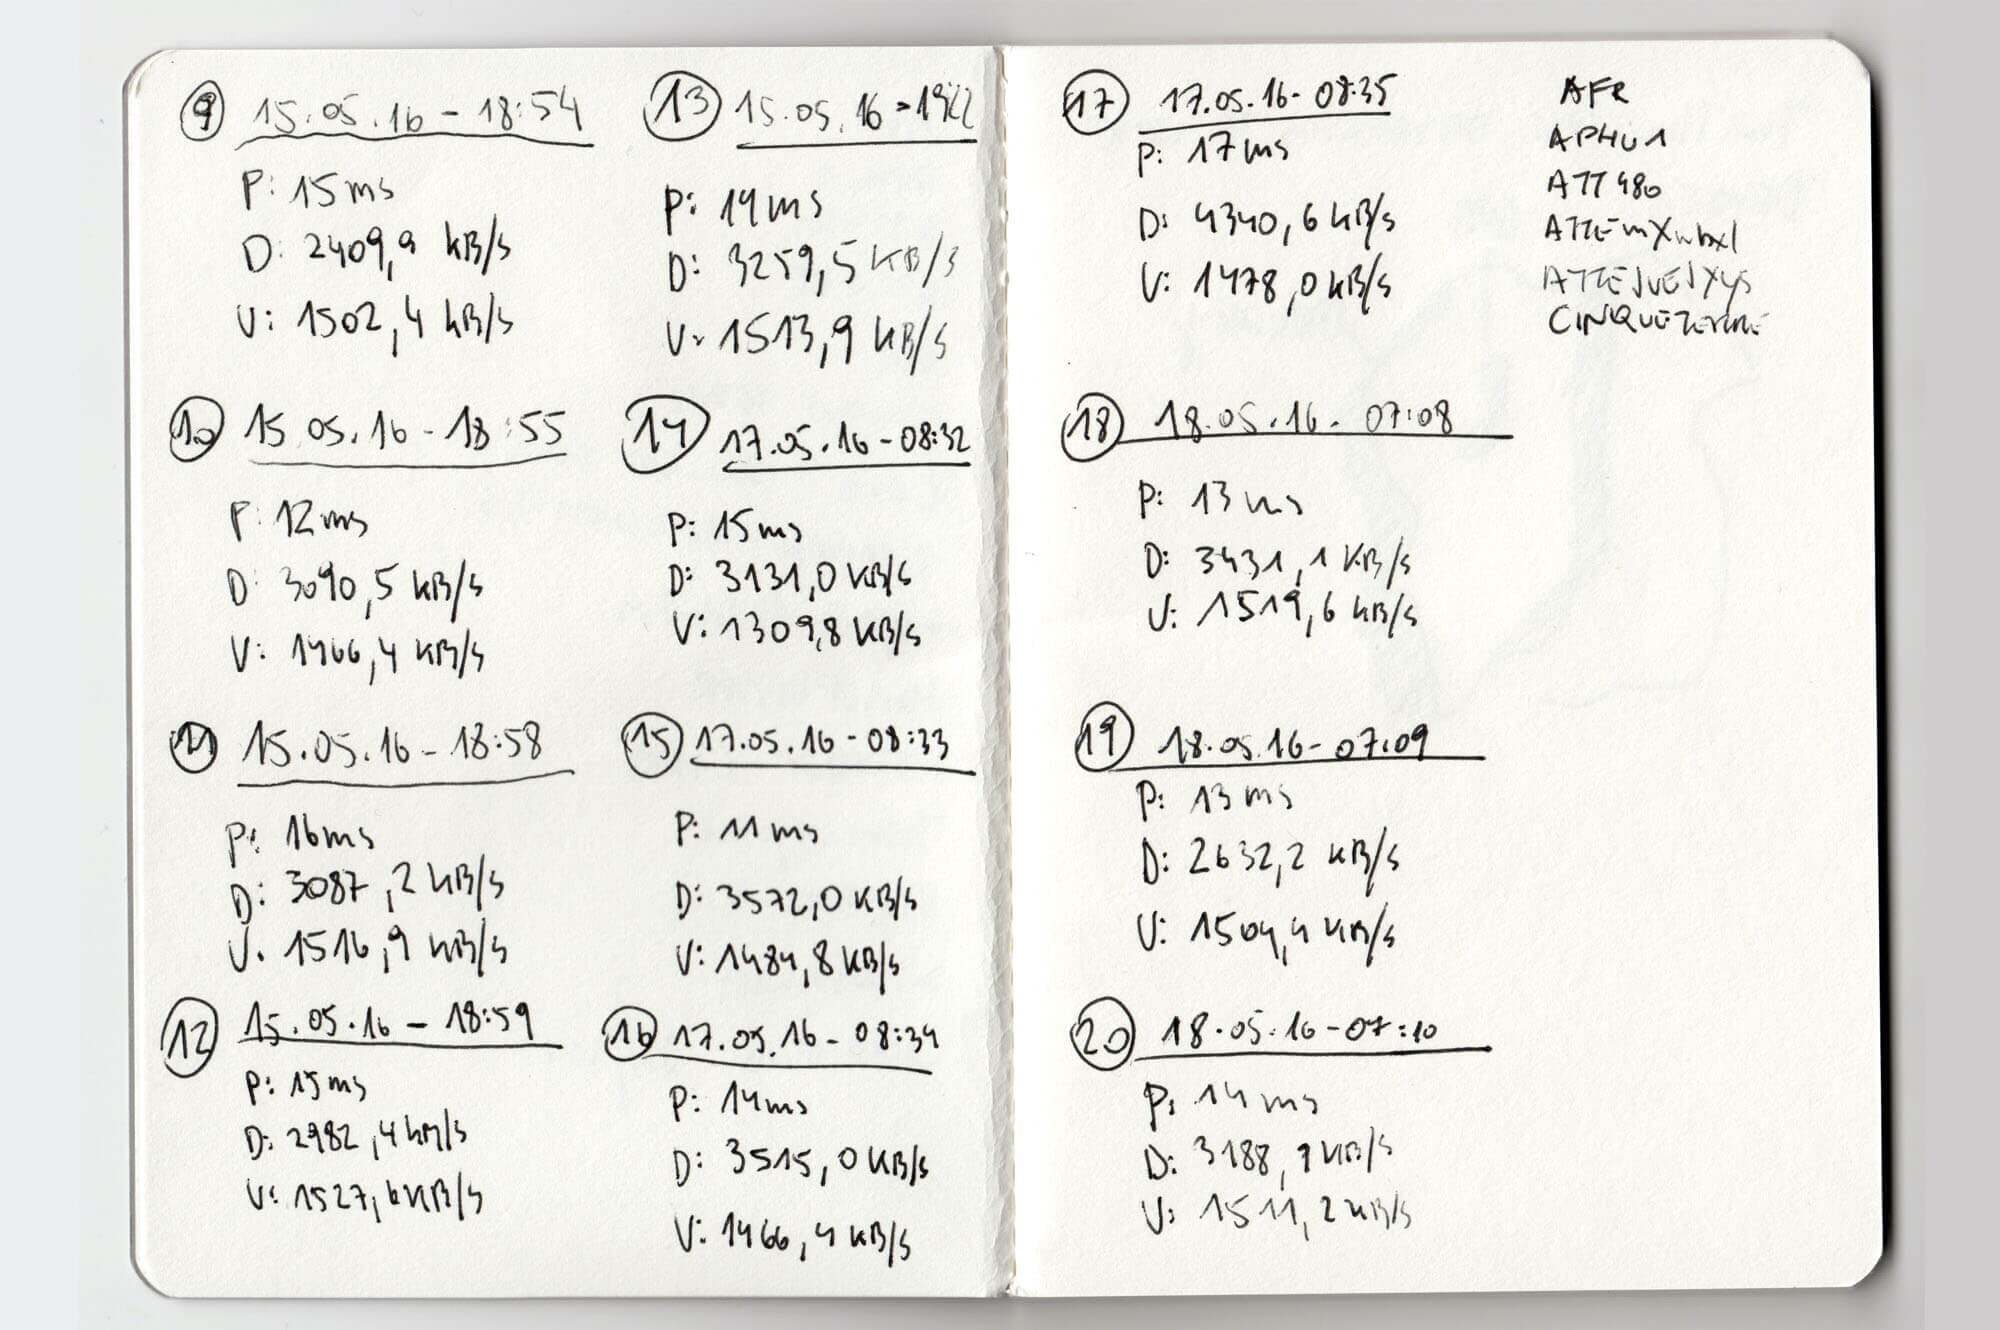 9 15.05.16 - 18:54
P: 15ms
D: 2409,9 kB/s
U: 1502,4 kB/s
10 15.05.16 - 18:55
P: 12ms
D: 3090,5 kB/s
U: 1466,4 kB/s
11 15.05.16 - 18:58
P: 16ms
D: 3087,2 kB/s
U. 1516,9 kB/s
12 15.05.16 - 18:59
P: 15ms
D: 2982,4 kB/s
U: 1527,6 kB/s
13 15.05.16 -
P: 14ms
D: 3259,5 KB/s
U: 1513,9 kB/s
14 17.05.16 - 08:32
P: 15ms
D: 3131,0 KB/s
U: 1309,8 KB/s
15 17.05.16 - 08:33
P: 11ms
D: 3572,0 KB/s
U: 1484,8 KB/s
16 17.05.16 - 08:34
P: 14ms
D: 3515,0 KB/s
U: 1466,4 KB/s
17 17.05.16 - 08:35
P: 17ms
D: 4340,6 kB/s
U: 1478,0 kB/s
18 18.05.16 - 07:08
P: 13 ms
D: 3431,1 KB/s
U: 1519,6 kB/s
19 18.05.16 - 07:09
P: 13 ms
D: 2632,2 kB/s
U: 1504,4 kB/s
20 18.05.16 - 07:10
P: 14 ms
D: 3188,9 kB/s
U: 1511,2 kB/s
AFR
APHU1
ATT480